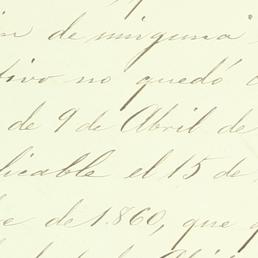 in de ninguna
tivo no quedó
de 9 de Abril de
licable el 15 de
re de 1.860, que